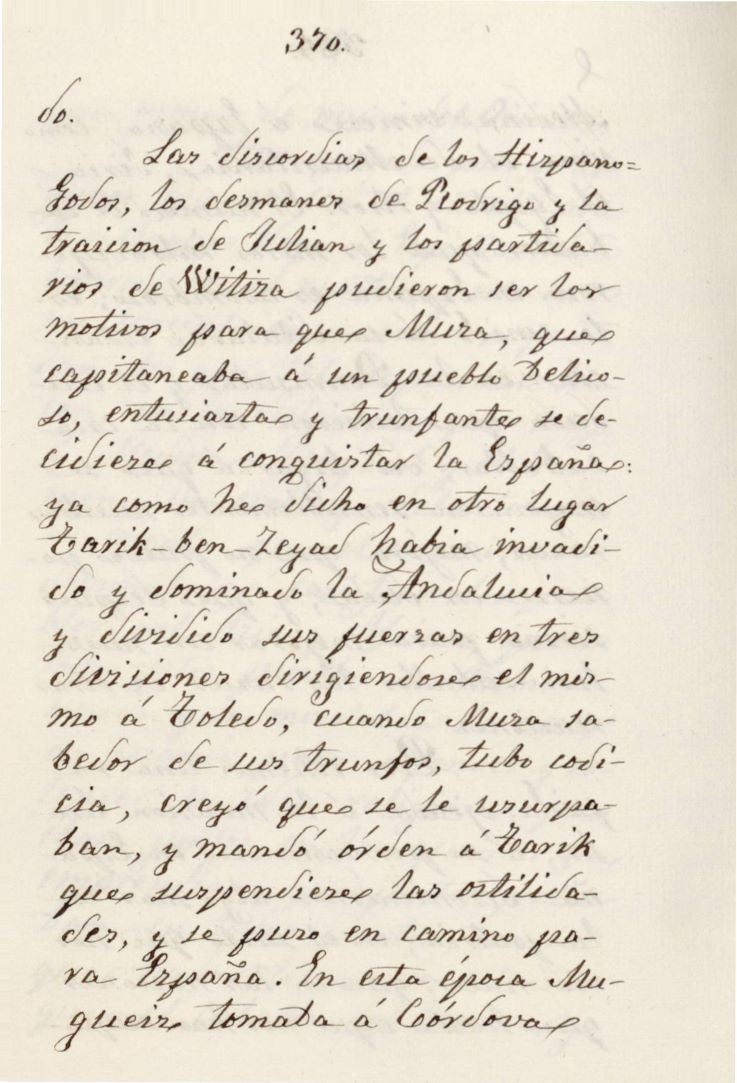 370.
do.
Las discordias de los Hispano=
Godos, los desmanes de Rodrigo y la
traicion de Julian y los partida-
rios de Witiza pudieron ser los
motivos para que Muza, que
capitaneaba á un pueblo belico-
so, entusiasta y trunfante se de-
cidiese á conquistar la España:
ya como he dicho en otro lugar
Tarik-ben-Zeyad habia invadi-
do y dominado la Andalucia
y dividido sus fuerzas en tres
divisiones dirigiendose el mis-
mo á Toledo, cuando Muza sa-
bedor de sus trunfos, tubo codi-
cia, creyó que se le usurpa-
ban, y mandó órden á Tarik
que suspendiese las ostilida-
des, y se puso en camino pa-
ra España. En esta época Mu-
gueiz tomaba á Córdova